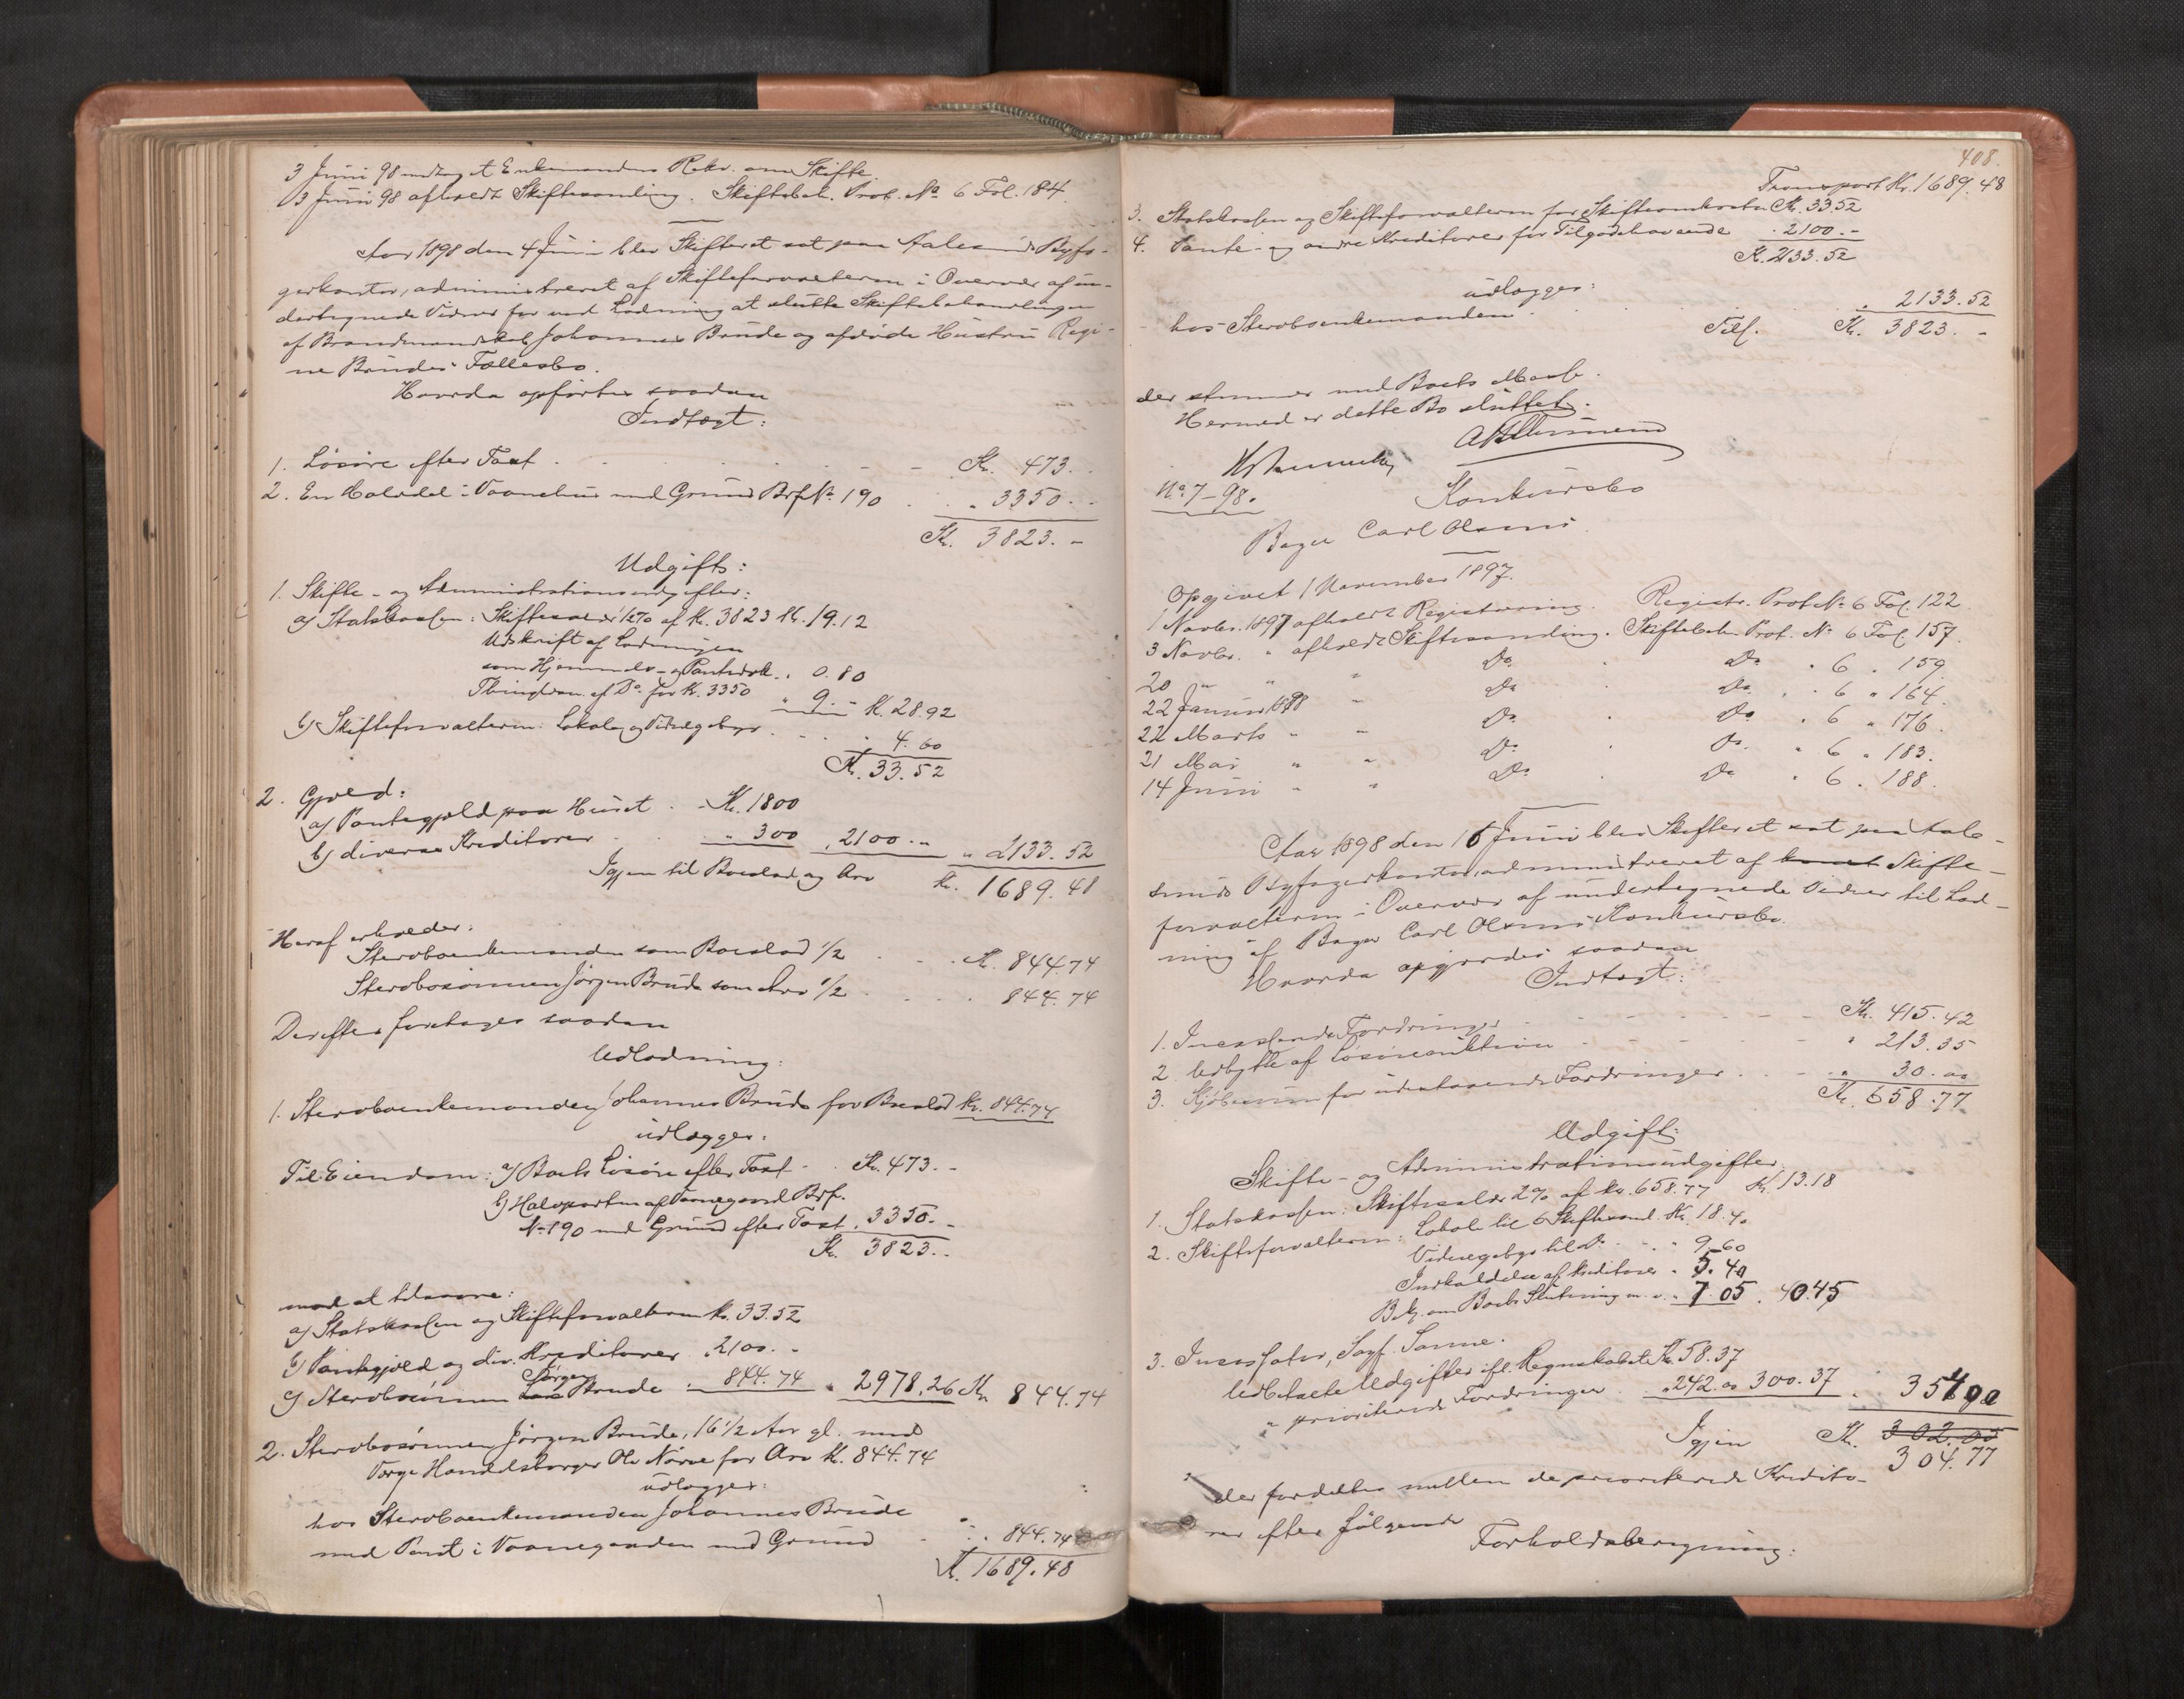 3 Juni 98 modtaget Enkemandens Rekv. om Skifte.
3 Juni 98 afholdt Skiftesamling. Skiftebeh. Prot. No 6 Fol. 184.
Aar 1898 den 4 Juni blev Skifteret sat paa Aalesunds Byfo-
gerkontor, administreret af Skifteforvalteren i Overvær af un-
dertegnede Vidner for ved Lodning at slutte Skiftebehandlingen
af Johannes Brude og afdøde Hustru Regi-
ne Brudes Fællesbo.
Hvorda opførtes saadan
Indtægt:
1. Løsøre efter Taxt Kr. 473. -
2. En Halvdel i Vaanehus med Grund Brf No 190 " 3350. -
Kr. 3823. -
Udgift:
1. Skifte- og Administrationsudgifter:
a) Statskassen: Skiftesalær 1/2% af Kr. 3823 Kr. 19.12
Udskrift af Lodningen
som Hjemmels- og Pantedok. " 0.80
Thinglæsn. af Do for Kr. 3350 " 9. - Kr. 28.92
b) Skifteforvalteren: Lokale og Vidnegebyr " 4.60
Kr. 33.52
2. Gjæld:
a) Pantegjæld paa Huset Kr. 1800
b) diverse Kreditorer " 300 " 2100. - " 2133.52
Igjen til Boeslod og Arv Kr. 1689.48
Heraf erholder:
Stervboenkemanden som Boeslod 1/2 Kr. 844.74
Stervbosønnen Jørgen Brude som Arv 1/2 844.74
Derefter foretoges saadan
Udlodning:
1. Stervboenkemanden Johannes Brude for Boeslod Kr. 844.74
udlægges:
Til Eiendom: a) Boets Løsøre efter Taxt Kr. 473. -
b) Halvparten af Vaanegaard Brf.
No 190 med Grund efter Taxt " 3350. -
Kr. 3823. -
mod at tilsvare:
a) Statskassen og Skifteforvalteren Kr. 33.52
b) Pantegjæld og div. Kreditorer " 2100. -
c) Stervbosønnen Jørgen Brude " 844.74 " 2978.26 Kr. 844.74
2. Stervbosønnen Jørgen Brude, 16 1/2 Aar gl. med
Værge Handelsborger Ole Nørve for Arv Kr. 844.74
udlægges:
hos Stervboenkemanden Johannes Brude
med Pant i Vaanegaarden med Grund " 844.74
Kr. 1689.48
408.
Transport Kr. 1689.48
3. Statskassen og Skifteforvalteren for Skifteomkostn. Kr. 33.52
4. Pante- og andre Kreditorer for Tilgodehavende " 2100. -
Kr. 2133.52
udlægges:
hos Stervboenkemanden " 2133.52
Tils. Kr. 3823. -
der stemmer med Boets Masse.
Hermed er dette Bo sluttet.
No 7-98.
Konkursbo
Bager Carl Olsens
Opgivet 1 November 1897.
1 Novbr. 1897 afholdt Registrering. Registr. Prot No 6 Fol. 122.
3 Novbr. " afholdt Skiftesamling. Skiftebeh. Prot. No 6 Fol. 157.
20 " " " Do Do " 6 " 159.
22 Januar 1898 " Do Do " 6 " 164.
22 Marts " " Do Do " 6 " 176.
21 Mai " " Do Do " 6 " 183.
14 Juni " " Do Do " 6 " 188.
Aar 1898 den 16 Juni blev Skifteret sat paa Aale-
sunds Byfogerkontor, administreret af Skifte-
forvalteren i Overvær af undertegnede Vidner til Lod-
ning af Bager Carl Olsens Konkursbo.
Hvorda opgjordes saadan
Indtægt:
1. Incasserede Fordringer Kr. 415.42
2. Udbytte af Løsøreauktion " 213.35
3. Kjøbesum for udestaaende Fordringer " 30.00
Kr. 658.77
Udgift:
Skifte- og Administrationsudgifter
1. Statskassen: Skiftesalær 2% af Kr. 658.77 Kr. 13.18
2. Skifteforvalteren: Lokale til 6 Skiftesaml. Kr. 18.40
Vidnegebyr til Do " 9.60
Indkaldelse af Kreditorer " 5.40
Bekj. om Boets Slutning m. v. " 7.05 " 40.45
3. Incassator, Sagf. Sanne.
Udbetalte Udgifter ifl. Regnskabet Kr. 58.37
" prioriterede Fordringer " 242.00 300.37 " 354.00
Igjen Kr. 302.05
304.77
der fordeltes mellem de prioriterede Kredito-
rer efter følgende
Forholdsberegning: